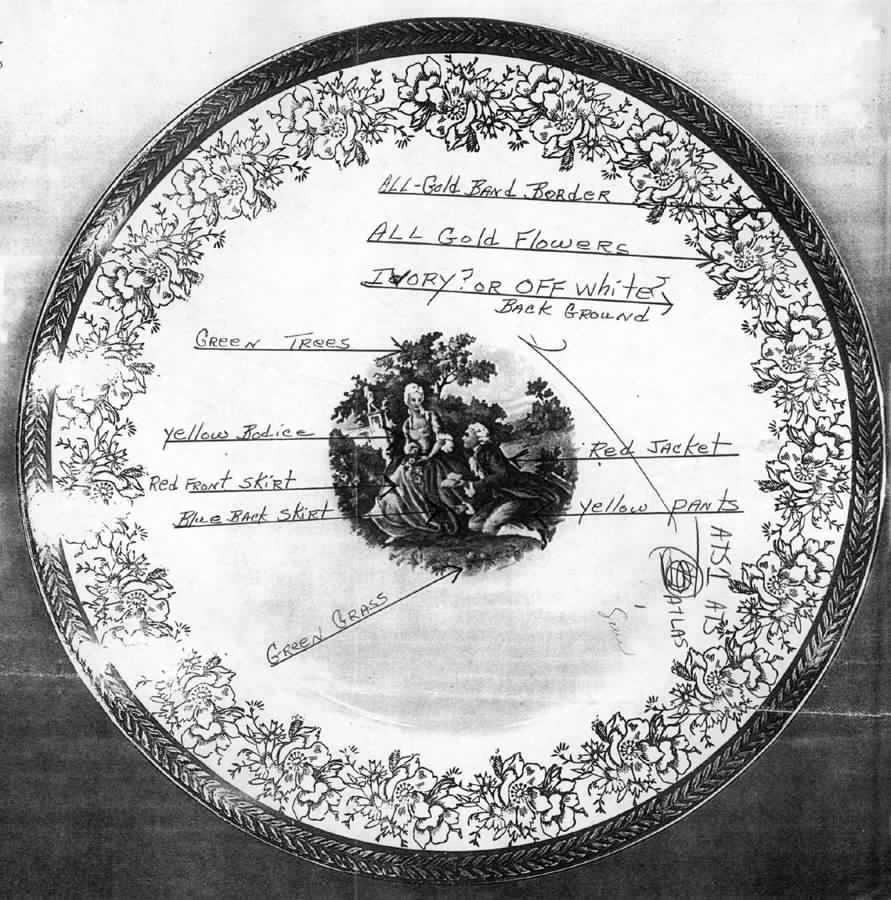 ALL-Gold Band Border
ALL Gold Flowers
IVORY? OR OFF White?
BACK GROUND
GREEN TREES
yellow Bodice
Red Jacket
Red FRONT SKIRT
yellow pants
Blue BACK SKIRT
GREEN GRASS
ATLAS